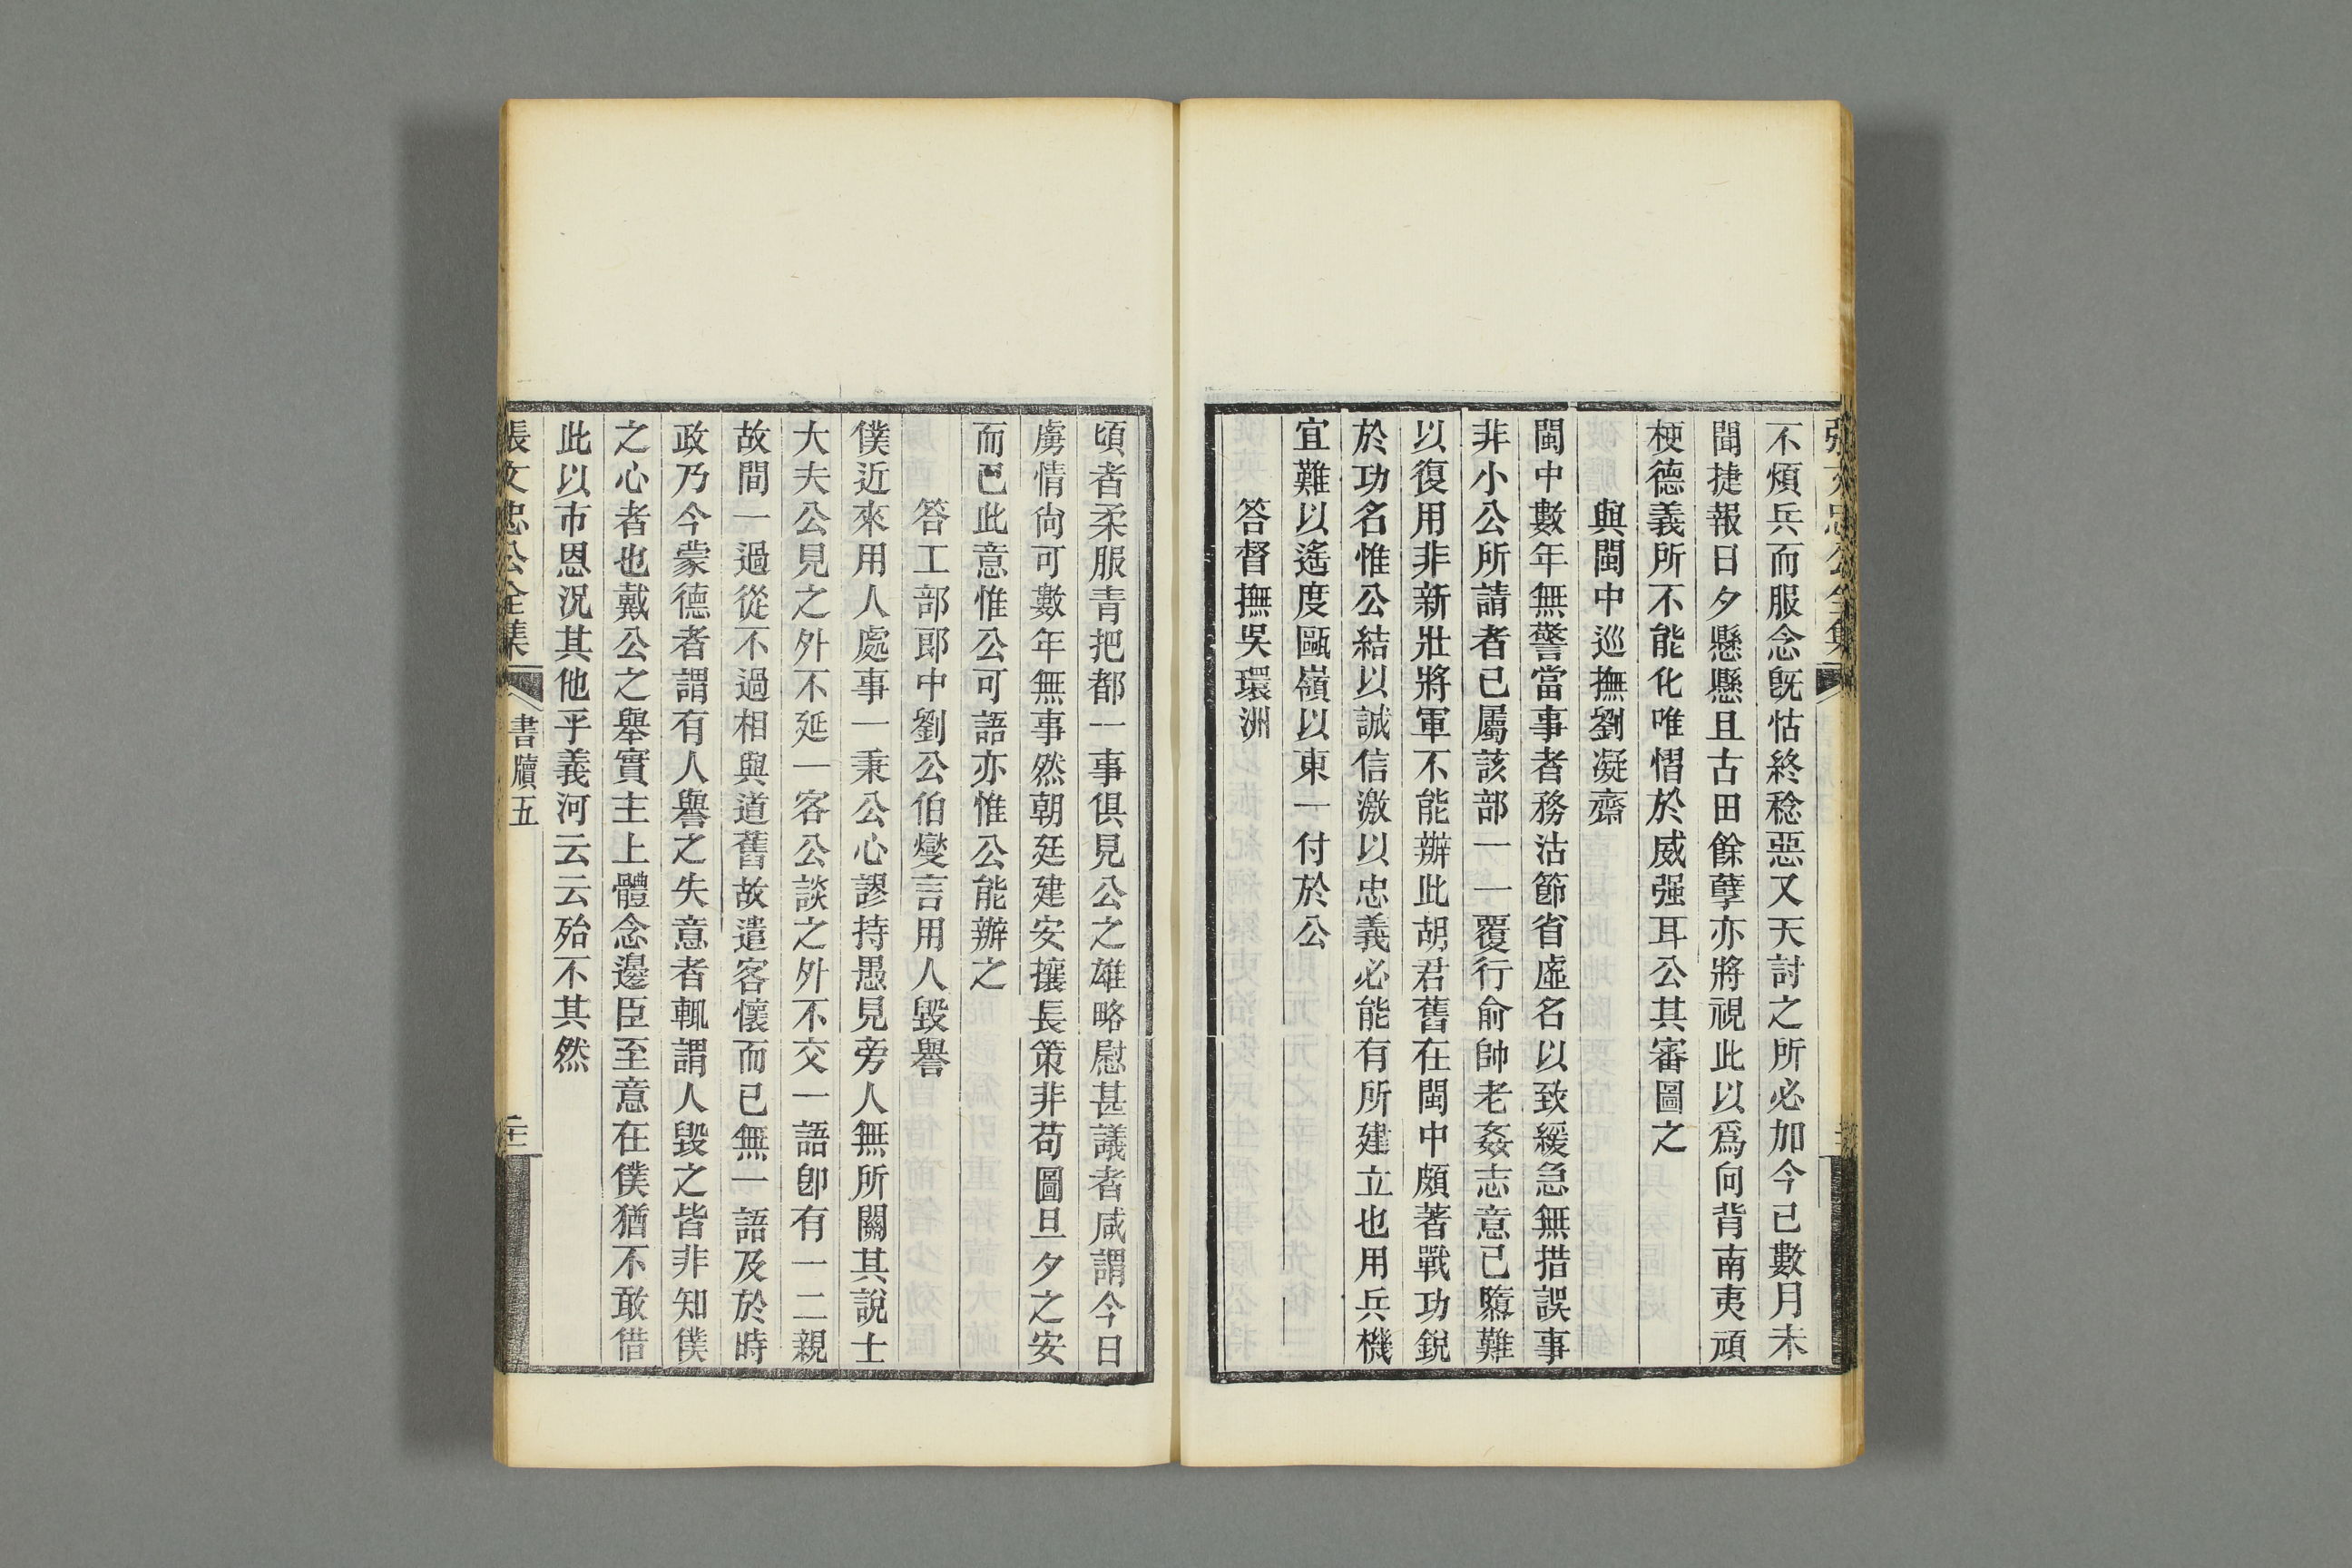 張文忠公全集
不煩兵而服念既怙終稔惡又天討之所必加今已數月未
聞捷報日夕懸懸且古田餘孽亦將視此以爲向背南夷頑
梗德義所不能化唯慴於威强耳公其審圖之
與閩中巡撫劉凝齋
閩中數年無警當事者務沽節省虛名以致緩急無措誤事
非小公所請者已屬該部一一覆行俞帥老姦志意已隳難
以復用非新壯將軍不能辦此胡君舊在閩中頗著戰功銳
於功名惟公結以誠信激以忠義必能有所建立也用兵機
宜難以遙度甌嶺以東一付於公
答督撫吳環洲
頃者柔服青把都一事俱見公之雄略慰甚議者咸謂今日
虜情尙可數年無事然朝廷建安攘長策非苟圖旦夕之安
而已此意惟公可語亦惟公能辦之
答工部郎中劉公伯燮言用人毀譽
僕近來用人處事一秉公心謬持愚見旁人無所關其說士
大夫公見之外不延一客公談之外不交一語卽有一二親
故間一過從不過相與道舊故遣客懷而已無一語及於時
政乃今蒙德者謂有人譽之失意者輒謂人毀之皆非知僕
之心者也戴公之舉實主上體念邊臣至意在僕猶不敢借
此以市恩況其他乎義河云云殆不其然
張文忠公全集 書牘五